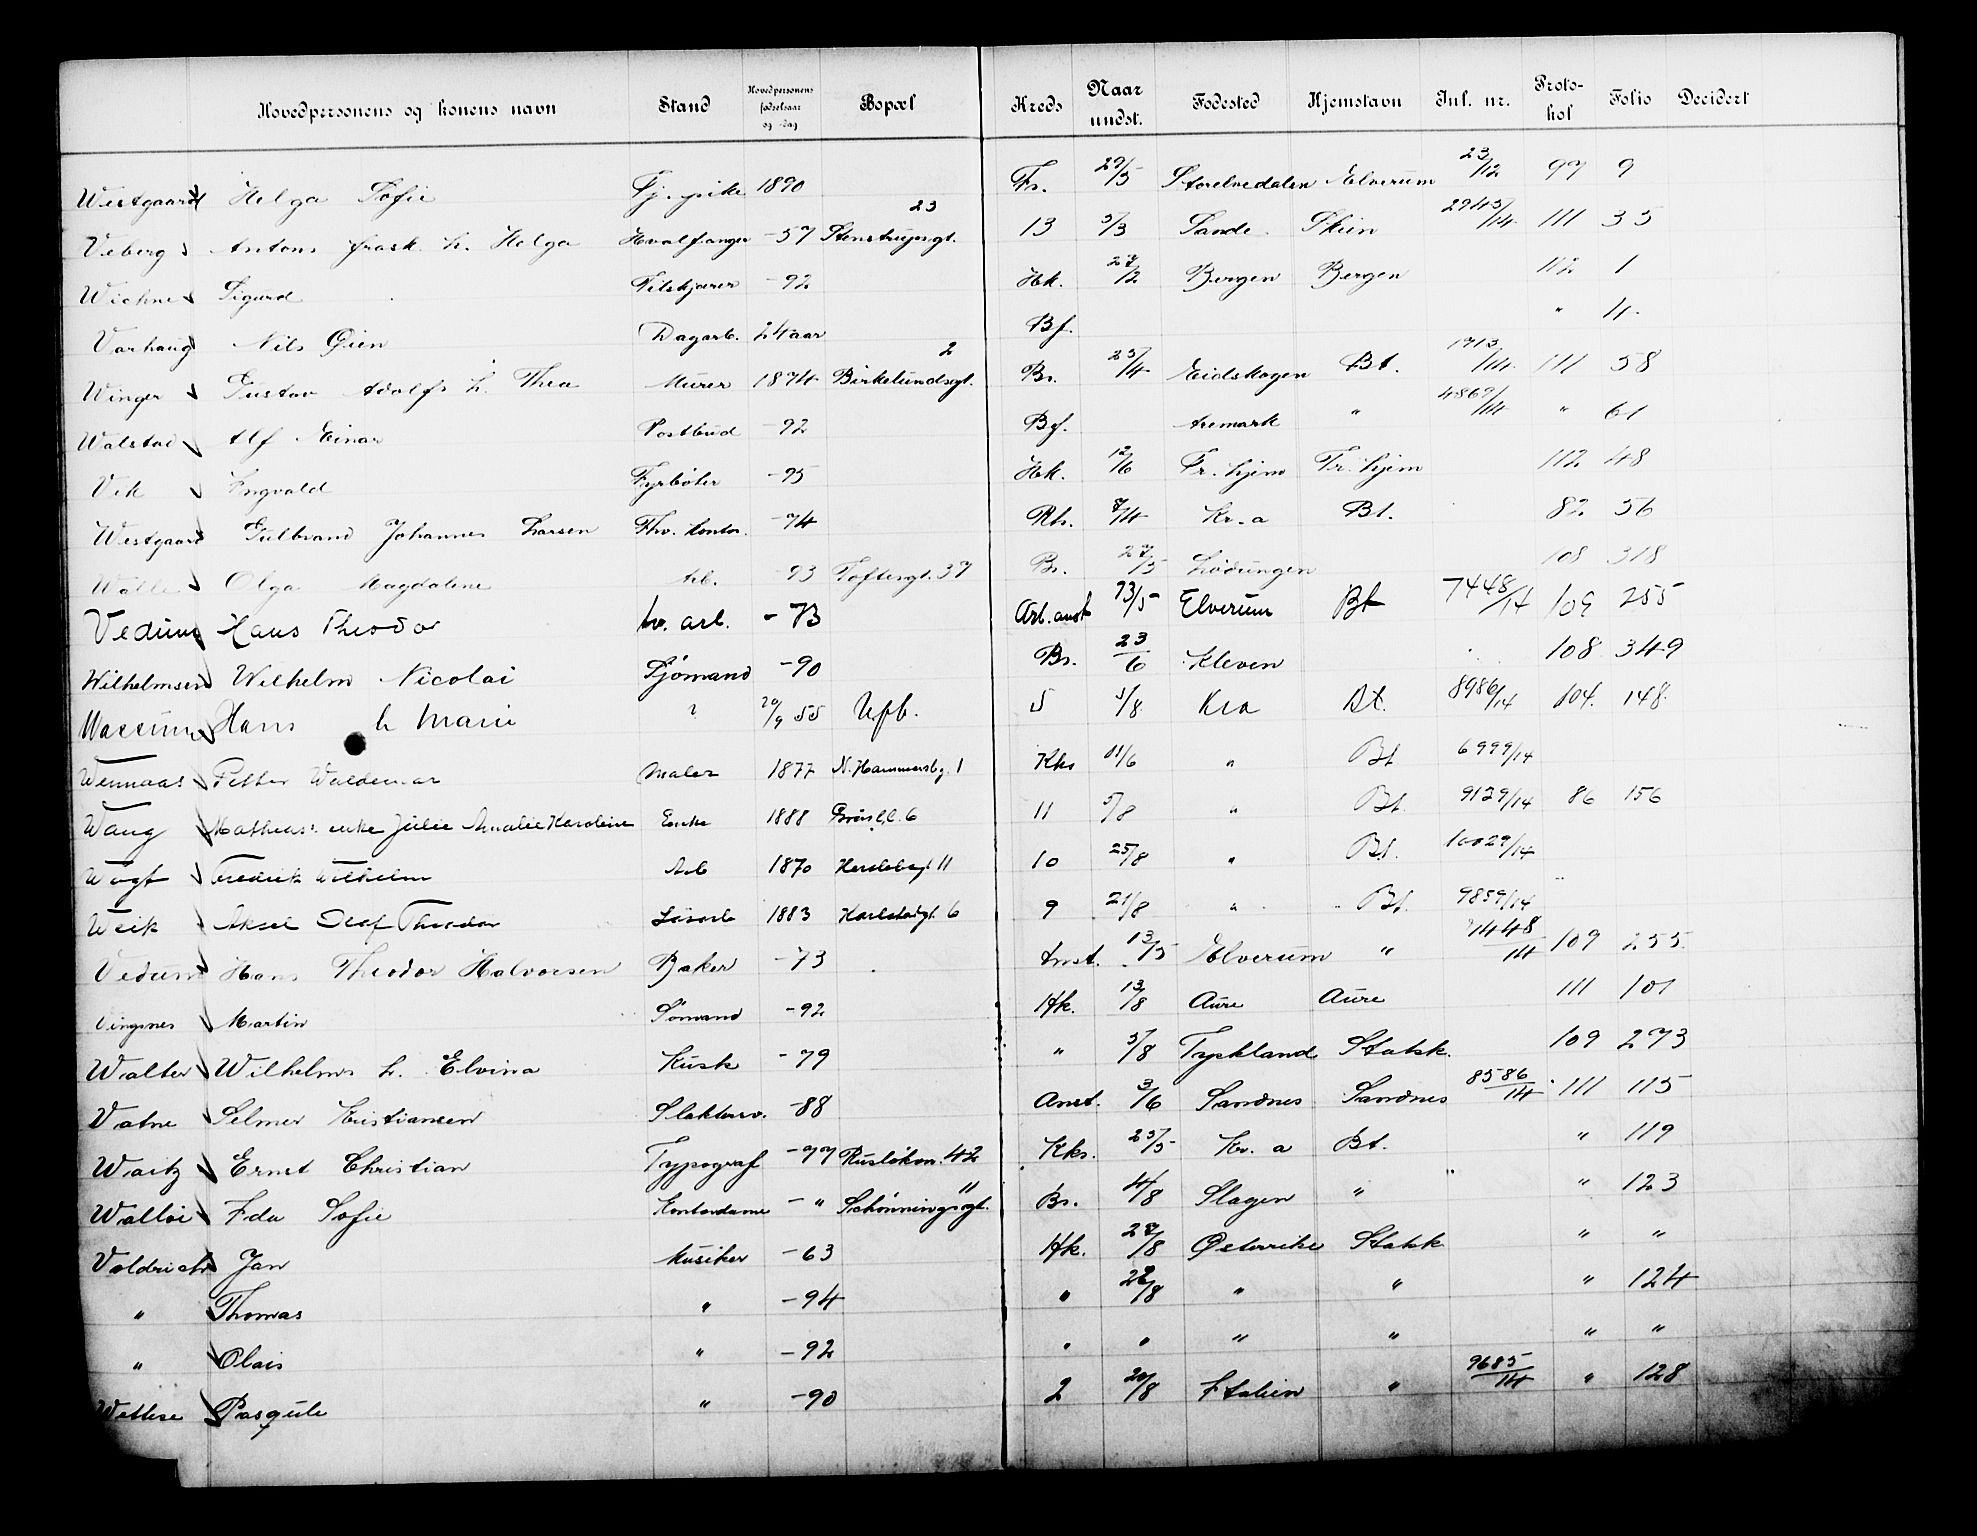 Hovedpersonens og konens navn Stand Hovedpersonens fødselsaar og -dag Bopæl Kreds Naar undst. Fødested Hjemstavn Jnl. nr. Protokol Folio Decidert
Westgaard Helga Sofie Tj. pike 1890 Fr. 29/5 Storelvedalen Elverum 23/12 97 9
Veberg Antons frask. h. Helga Hvalfanger -57 Stenstrupsgt. 23 13 5/3 Sande Skien 2945/14 111 35
Wichne Sigurd Filskjærer -92 Hk. 27/2 Bergen Bergen 112 1
Varhaug Nils Øien Dagarb. 24 aar Bf. " 4
Winger Gustav Adolfs h. Thea Murer 1874 Birkelundsgt. 2 Br. 25/4 Eidskogen Bt. 1913/14 111 58
Walstad Alf Einar Postbud -92 Bf. Aremark " 4869/14 " 61
Vik Ingvald Fyrbøter -95 Hk. 12/6 Fr. hjem Tr. hjem 112 48
Westgaard Gulbrand Johannes Larsen Thv. kontor. -74 Rh. 7/4 Kr.a Bt. 82 56
Walle Olga Magdalene Arb. -93 Toftesgt. 37 Br. 27/5 Lødingen 108 318
Vedum Hans Theodor hv. arb. -73 Arb. anst 13/5 Elverum Bt 7448/14 109 255
Wilhelmsen Wilhelm Nicolai Sjømand -90 Br. 23/6 Kleven 108 349
Hans h Marie ? 20/9 55 Upb. 5 5/8 Kra Bt. 8986/14 104. 148
Wennaas Petter Waldemar Maler 1877 N. Hammersbg. 1 Kks 11/6 " Bt 6999/14
Wang Mathias' enke Julie Amalie Karoline Enke 1888 11 5/8 " Bt. 9129/14 86 156
Vogt Fredrik Wilhelm Arb 1870 Herslebsgt 11 10 25/8 " Bt. 10029/14
Weik Aksel Olaf Theodor Løsarb 1883 Karlstadgt. 6 9 21/8 " Bt. 9859/14
Vedum Hans Theodor Halvorsen Baker -73 Anst. 13/5 Elverum " 7448/14 109 255
Vingsnes Martin Sømand -92 Hk. 13/8 Aure Aure 111 101
Walter Wilhelms h. Elvina Kusk -79 " 5/8 Tyskland Statsk. 109 273
Vatne Selmer Kristiansen Slakterv. -88 Anst. 3/6 Sandnes Sandnes 8586/14 111 115
Waitz Ernst Christian Typograf -97 Rusløkvn. 42 Kks. 25/5 Kr. a Bt. " 119
Walløi Ida Sofie Kontordame -" Schønningsgt. 11 Br. 4/8 Slagen " " " 123
Voldrich Jan Musiker -63 Hk. 27/8 Østerrike Statsk " "
" Thomas " -94 " 27/8 " " " 124
" Olais " -92 " " " " " "
Pasquale " -90 2 20/8 Italien " 9685/14 " 128